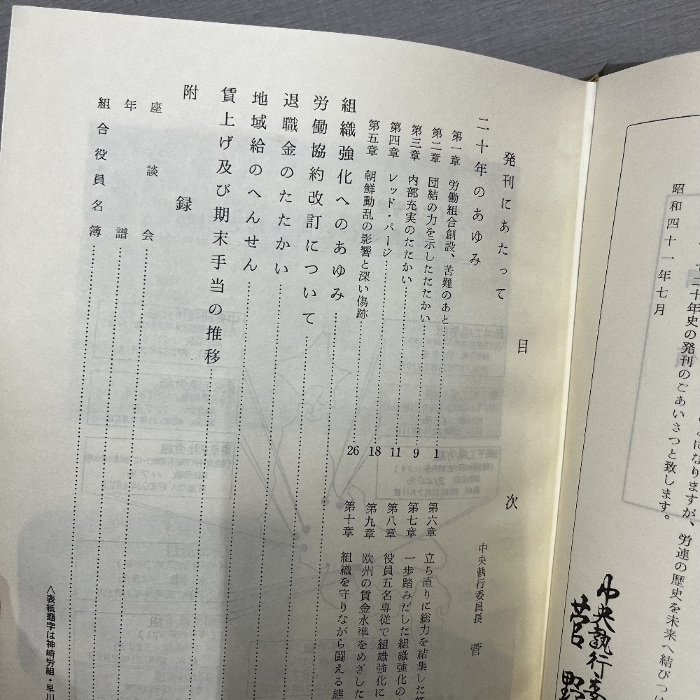 昭和四十一年七月
二十年史の発刊のごあいさつと致します。
になりますが、労連の歴史を未来へ結びつ
中央執行委
菅 野
目 次
発刊にあたって
中央執行委員長 菅
二十年のあゆみ
第一章 労働組合創設、苦難のあと 1
第二章 団結の力を示したたたかい 9
第三章 内部充実のたたかい 11
第四章 レッド・パージ 18
第五章 朝鮮動乱の影響と深い傷跡 26
第六章 立ち直りに総力を結集した
第七章 一歩踏みだした組織強化の
第八章 役員五名専従で組織強化に
第九章 欧州の賃金水準をめざした
第十章 組織を守りながら闘える態
組織強化へのあゆみ
労働協約改訂について
退職金のたたかい
地域給のへんせん
賃上げ及び期末手当の推移
附 録
座談会
年譜
組合役員名簿
〈表紙題字は神崎労組・早川